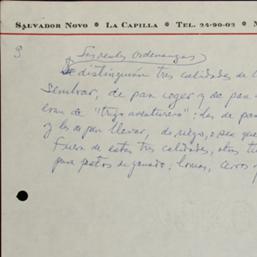 SALVADOR NOVO • LA CAPILLA • TEL. 24-90-02 •
9
Las reales ordenanzas
distinguían tres calidades de
sembrar, de pan coger y de pan
eran de "trigo aventurero"; las de pan
y las de pan llevar, de riego, o sea que
Fuera de estas tres calidades, otras
para pastos de ganado; lomas, cerros y